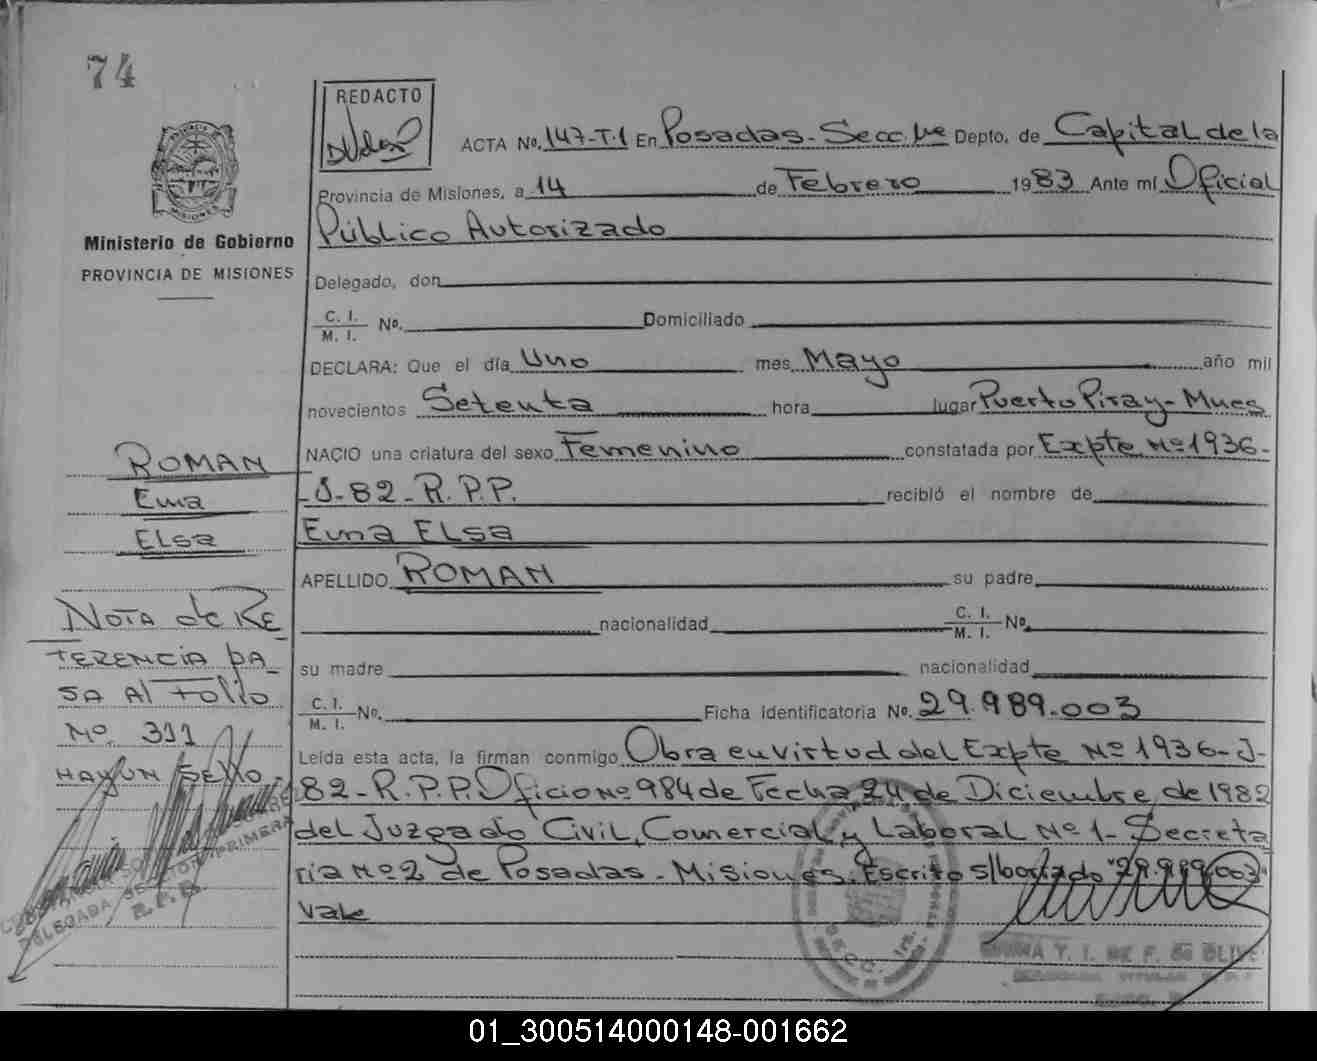 74
REDACTO
ACTA No. 147-T.1 En Posadas-Secc. 1ra Depto. de Capital de la
Provincia de Misiones, a 14 de Febrero 1983 Ante mí Oficial
Público Autorizado
Ministerio de Gobierno
PROVINCIA DE MISIONES
Delegado, don
C. I.
M. I. No. Domiciliado
DECLARA: Que el día Uno mes Mayo año mil
novecientos Setenta hora lugar Puerto Piray-Mnes
NACIO una criatura del sexo Femenino constatada por Expte Nº 1936-
-J-82-R.P.P. recibió el nombre de
Ema ELsa
APELLIDO ROMAN su padre
nacionalidad C. I.
M. I. No.
su madre nacionalidad
C. I.
M. I. No. Ficha identificatoria No. 29.989.003
Leída esta acta, la firman conmigo Obra en virtud del Expte Nº 1936-J-
82-R.P.P. Oficio Nº 984 de Fecha 24 de Diciembre de 1982
del Juzgado Civil, Comercial y Laboral Nº 1-Secreta
ria Nº 2 de Posadas-Misiones. Escrito s/borrado "29.989.003"
Vale
ROMAN
Ema
ELsa
NOTA de RE
FERENCIA PA-
SA Al Folio
Nº 311
HAY UN SELLO
DELEGADA SECCION PRIMERA
R.P.P.
SECC. 1ra.
01_300514000148-001662